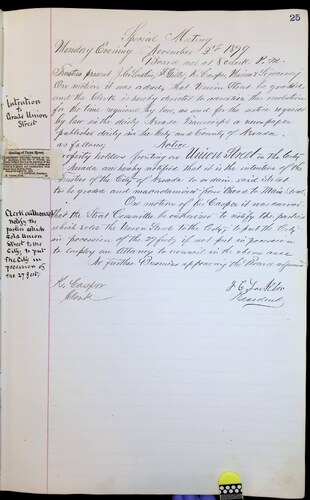 25
Special Meeting
Monday Evening November 2nd 1899
Board met at 8 oclock P.m.
Trustees present
On motion it was ordered that Union Street be graded
and the Clerk is hereby directed to advertise the resolution
for the time required by law, as and for the notice required
by law in the daily Transcript a newspaper
publishes daily in the City and County of
as follows: Notice
Property holders fronting on Union Street in the City
of are hereby notified that it is the intention of the
Trustees of the City of to order said Street
to be graded and macadamized from Broad to Main Street.
On motion of Mr Casper it was carried
that the Street Committee be authorized to notify the parties
which sold the Union Street to the City, to put the City
in possession of the 27 feet, if not put in possession
to employ an Attorney to council in the above case
No further Business appearing the Board adjourned
K. Casper
Clerk
President
Intention
to
Grade Union
Street
Clerk authorized
notify the
parties which
sold Union
Street to the
City, to put
the City in
possession of
the 27 feet.